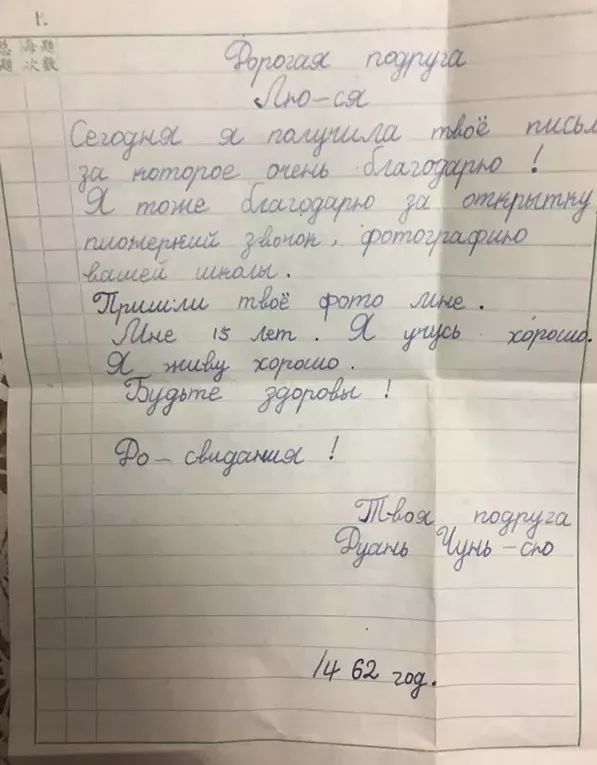 1.
总题 每题次数
Дорогая подруга
Лю-ся
Сегодня я получила твоё письм
за которое очень благодарю!
Я тоже благодарю за открытку
пионерский звонок, фотографию
вашей школы.
Пришли твоё фото мне.
Мне 15 лет. Я учусь хорошо.
Я живу хорошо.
Будьте здоровы!
До-свидания!
Твоя подруга
Дуань Чунь-сю
14 62 год.